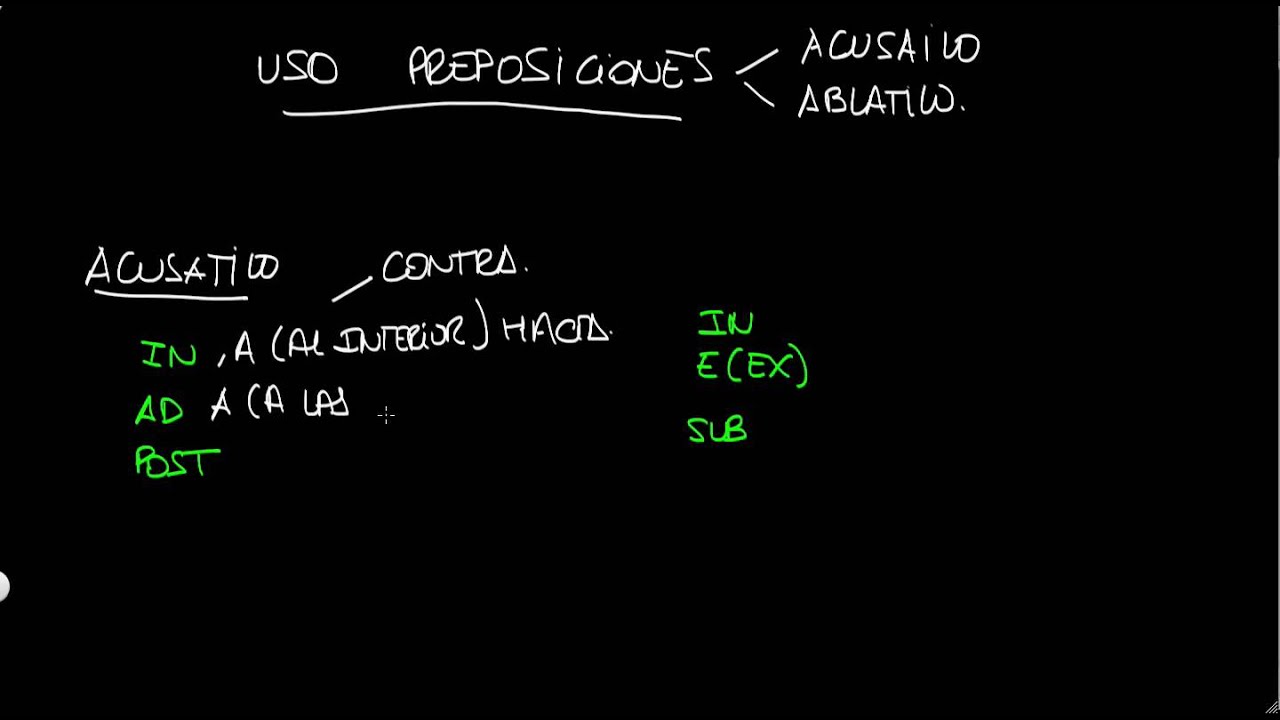 USO PREPOSICIONES
ACUSAIVO
ABLATIVO.
ACUSATIVO
CONTRA.
IN , A (AL INTERIOR) HACIA.
AD A (A LAS
POST
IN
E (EX)
SUB